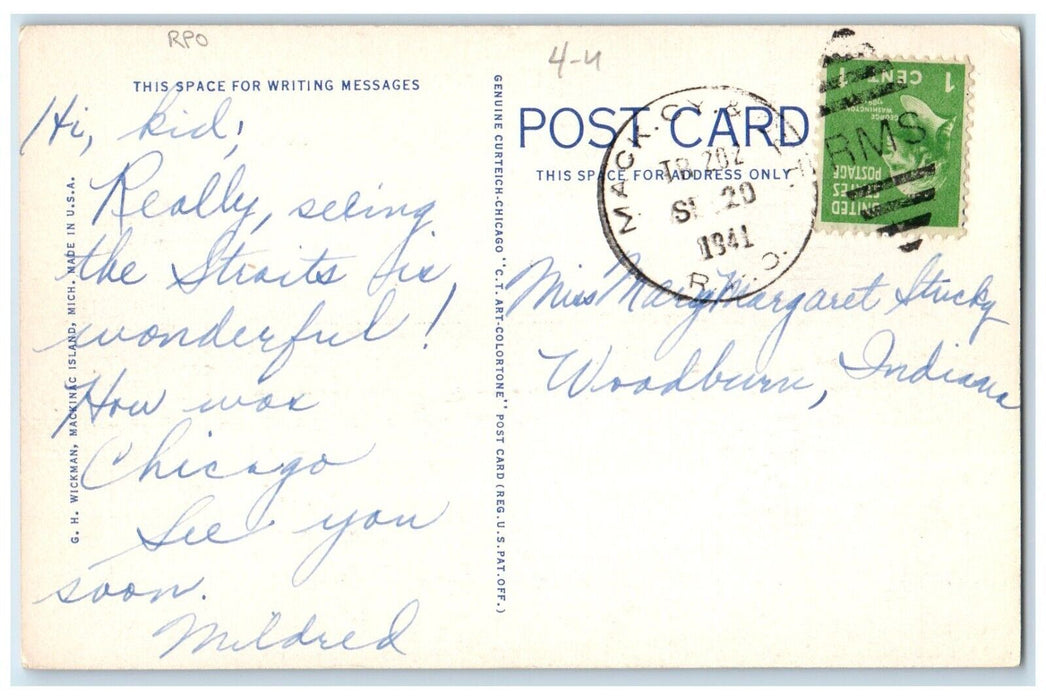 RPO
4-U
THIS SPACE FOR WRITING MESSAGES
Hi, kid,
Really, seeing
the Straits is
wonderful!
How was
Chicago
See you
soon.
Mildred
G. H. WICKMAN, MACKINAC ISLAND, MICH. MADE IN U.S.A.
GENUINE CURTEICH-CHICAGO "C.T. ART-COLORTONE" POST CARD (REG. U.S. PAT. OFF.)
POST CARD
THIS SPACE FOR ADDRESS ONLY
MACK. CY. &
TR 202
20
1941
R.P.O.
RMS
UNITED
STATES
POSTAGE
GEORGE
WASHINGTON
1 CENT 1
Miss Mary Margaret Stucky
Woodburn, Indiana